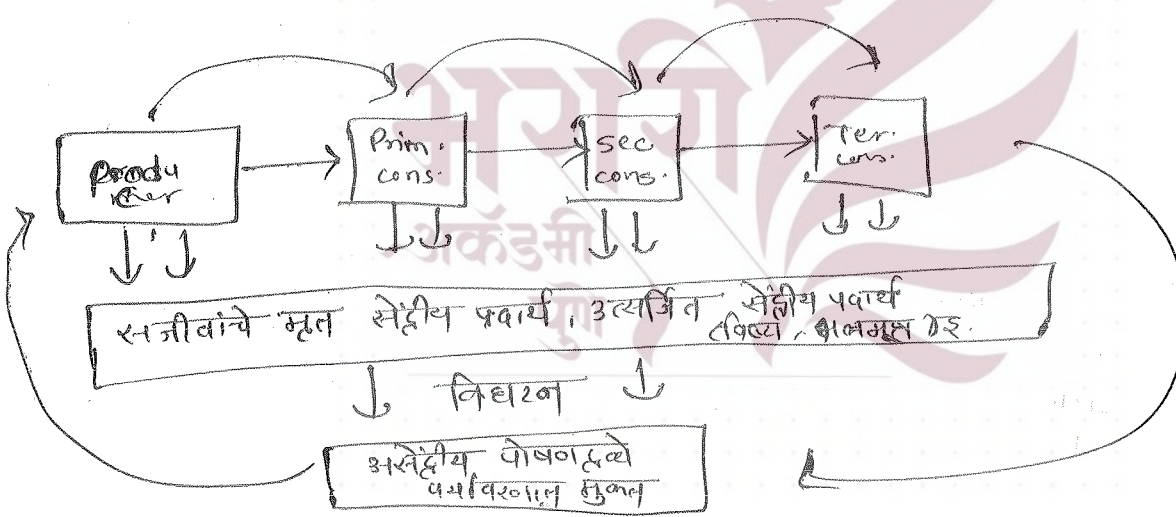 Produ
cer
Prim.
cons.
sec
cons.
Ter.
cons.
सजीवांचे मृत सेंद्रीय पदार्थ, उत्सर्जित सेंद्रीय पदार्थ
मलमूत्र इ.
विघटन
असेंद्रीय पोषणद्रव्ये
पर्यावरणात मुक्त
अकॅडमी
पुणे